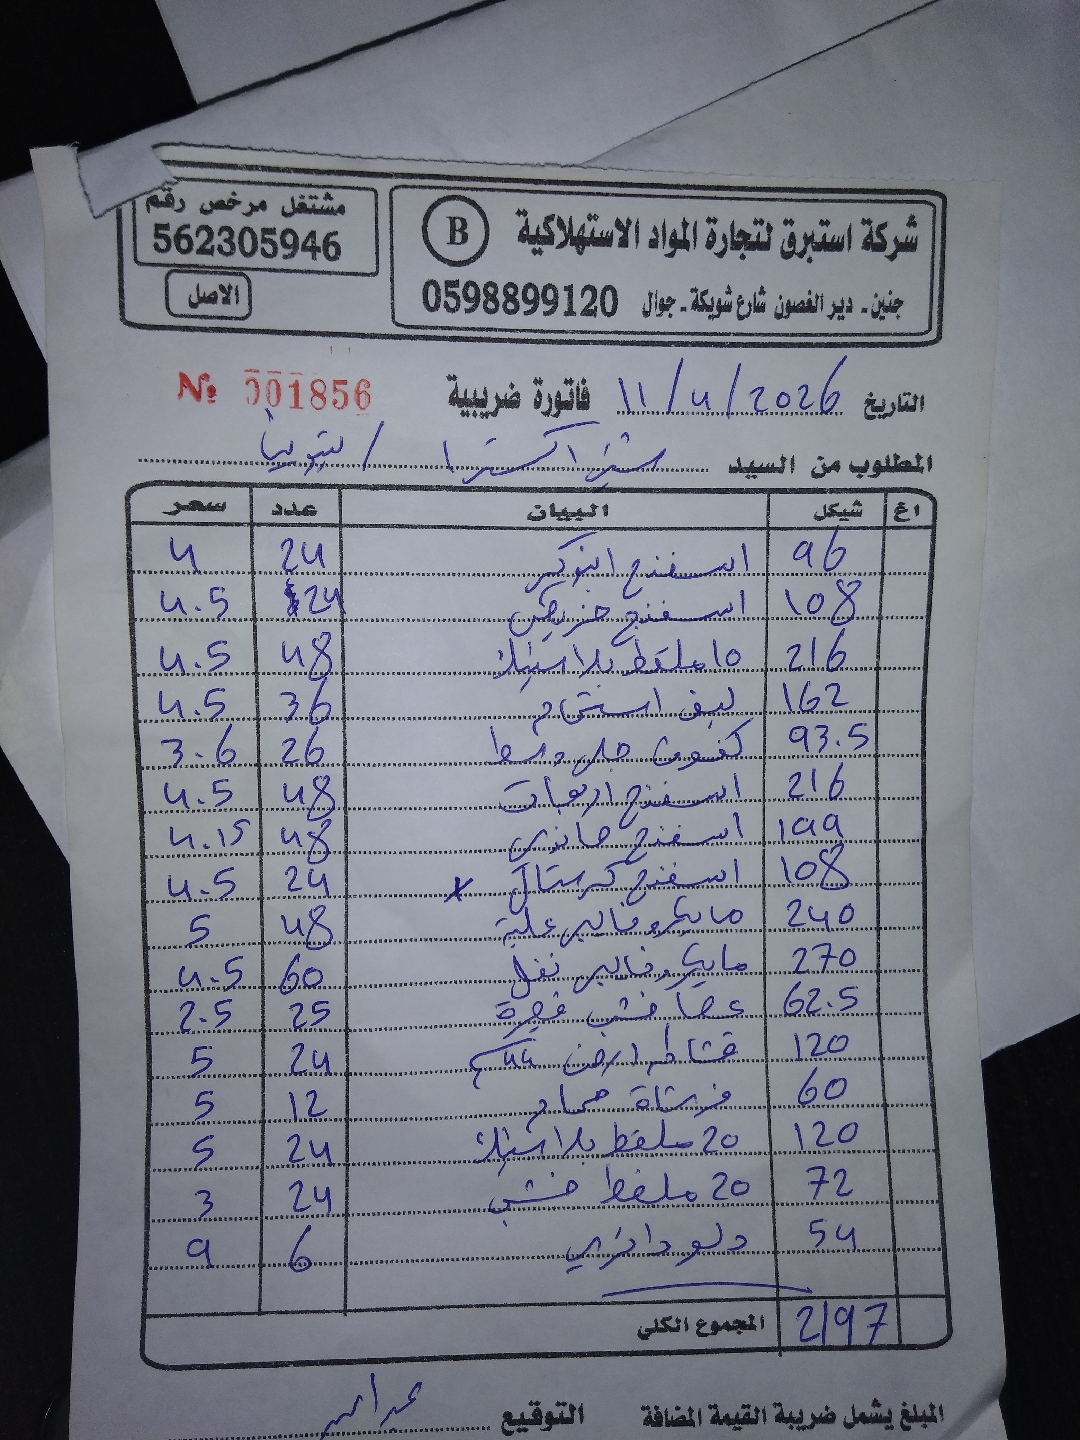 شركة استبرق لتجارة المواد الاستهلاكية B مشتغل مرخص رقم
562305946
جنين ـ دير الغصون شارع شويكة ـ جوال 0598899120 الاصل
التاريخ 11/4/2026 فاتورة ضريبية № 001856
المطلوب من السيد اكسترا /
اغ شيكل البيان عدد سعر
96 اسفنج 24 4
108 اسفنج 24 4.5
216 10 ملقط بلاستيك 48 4.5
162 ليف استحمام 36 4.5
93.5 كفوف جلي وسط 26 3.6
216 اسفنج 48 4.5
199 اسفنج 48 4.15
108 اسفنج كرستال x 24 4.5
240 مايكروفايبر علبة 48 5
270 مايكروفايبر 60 4.5
62.5 عصا خشب 25 2.5
120 قشاط ارض 44 سم 24 5
60 فرشاة حمام 12 5
120 20 ملقط بلاستيك 24 5
72 20 ملقط خشب 24 3
54 دلو دائري 6 9
المجموع الكلي 2197
المبلغ يشمل ضريبة القيمة المضافة التوقيع